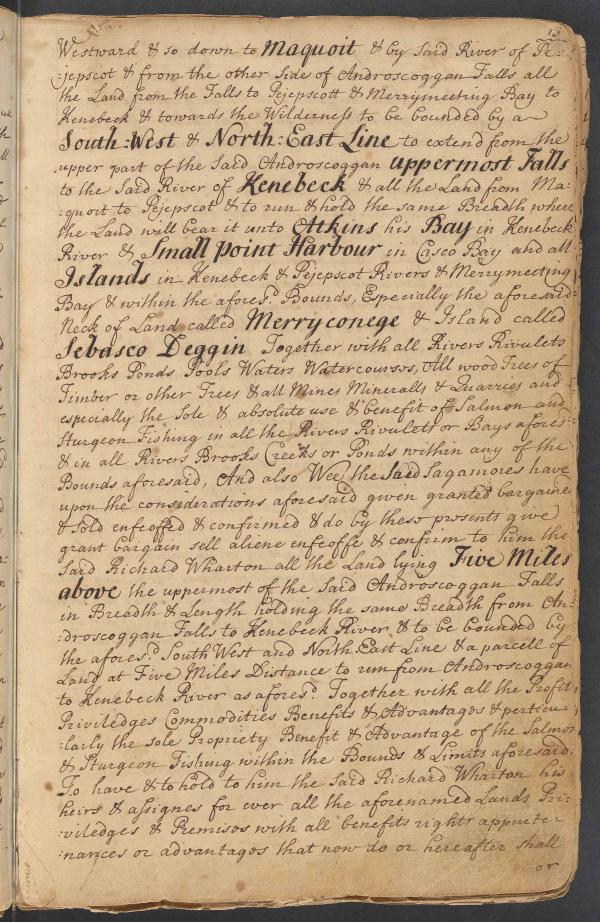 Westward & so down to Maquoit & by said River of Pe=
:jepscot & from the other Side of Androscoggan Falls all
the Land from the Falls to Pejepscott & Merrymeeting Bay to
Kenebeck & towards the Wilderness to be bounded by a
South=West & North=East Line to extend from the
upper part of the said Androscoggan uppermost Falls
to the Said River of Kenebeck & all the Land from Ma=
:quoit to Pejepscot & to run & hold the same Breadth where
the Land will bear it unto Atkins his Bay in Kenebeck
River & Small Point Harbour in Casco Bay and all
Islands in Kenebeck & Pejepscot Rivers & Merrymeeting
Bay & within the afores.d Bounds, Especially the aforesaid
Neck of Land called Merryconege & Island called
Sebasco Deggin Together with all Rivers Rivulets
Brooks Ponds Pools Waters Watercourses, All wood Trees of
Timber or other Trees & all Mines Mineralls & Quarries and
especially the Sole & absolute use & benefit of Salmon and
Sturgeon Fishing in all the Rivers Rivulets or Bays afores:d
& in all Rivers Brooks Creeks or Ponds within any of the
Bounds aforesaid, And also Wee the Said Sagamores have
upon the considerations aforesaid given granted bargained
& Sold enfeoffed & confirmed & do by these presents give
grant bargain sell aliene enfeoffe & confirm to him the
Said Richard Wharton all the Land lying Five Miles
above the uppermost of the Said Androscoggan Falls
in Breadth & Length holding the same Breadth from An=
:droscoggan Falls to Kenebeck River & to be bounded by
the afores.d South West and North East Line & a parcell of
Land at Five Miles Distance to run from Androscoggan
to Kenebeck River as afores.d Together with all the Profits
Priviledges Commodities Benefits & Advantages & perticu
:larly the sole Propriety Benefit & Advantage of the Salmon
& Sturgeon Fishing within the Bounds & Limits aforesaid.
To have & to hold to him the Said Richard Wharton his
heirs & assignes for ever all the aforenamed Lands Pri=
:viledges & Premises with all benefits rights appurter
:nances or advantages that now do or hereafter shall
or